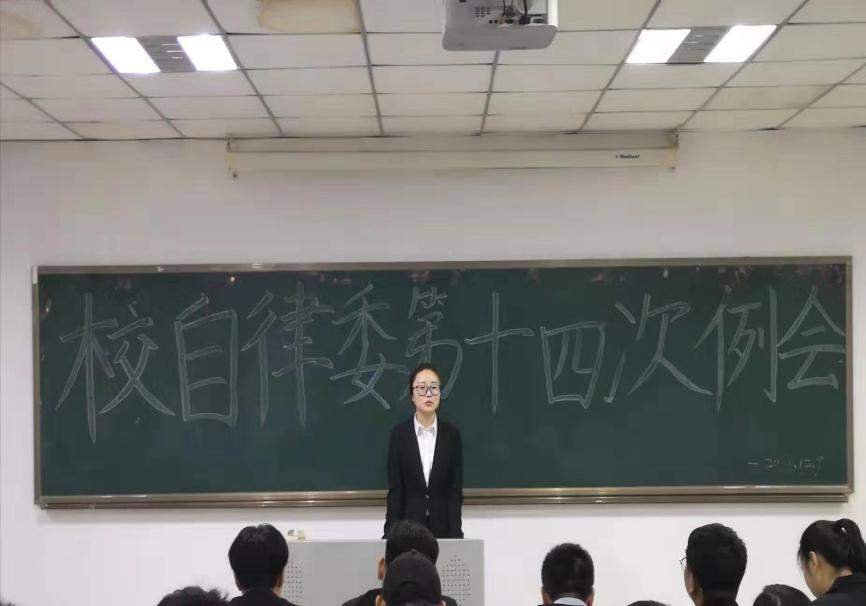 校自律委第十四次例会